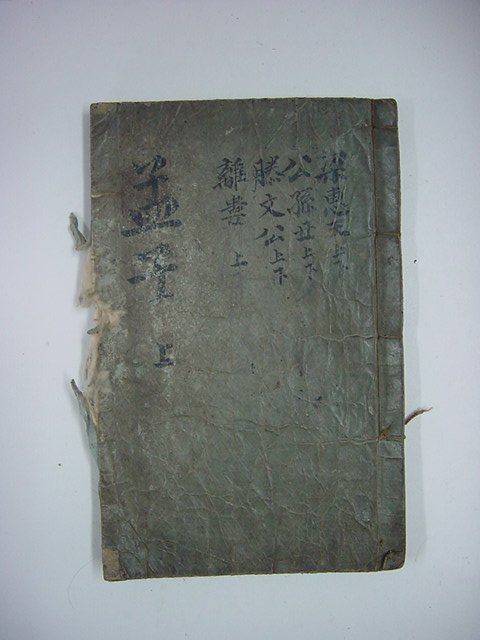 梁惠王上下
公孫丑上下
滕文公上下
離婁 上
孟子 上